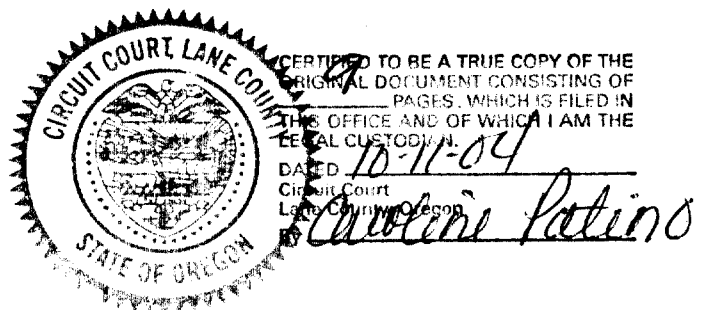 CIRCUIT COURT, LANE COUNTY
STATE OF OREGON
CERTIFIED TO BE A TRUE COPY OF THE
ORIGINAL DOCUMENT CONSISTING OF
9 PAGES. WHICH IS FILED IN
THIS OFFICE AND OF WHICH I AM THE
LEGAL CUSTODIAN.
DATED 10-11-04
Circuit Court
Lane County, Oregon
BY Caroline Patino